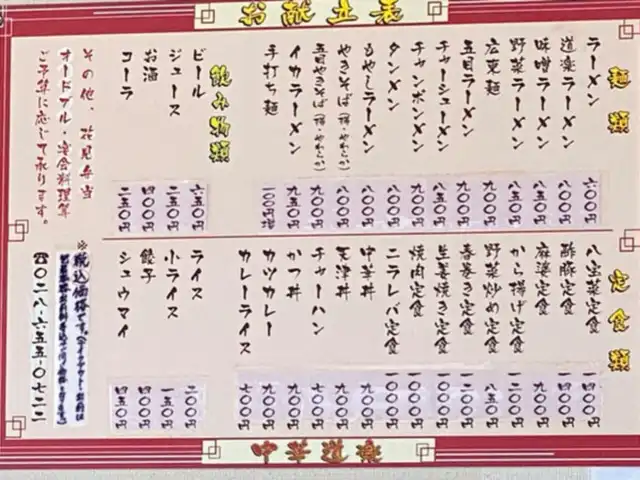 お献立表
麺類
ラーメン 六〇〇円
道楽ラーメン 八〇〇円
味噌ラーメン 八五〇円
野菜ラーメン 八五〇円
広東麺 九〇〇円
五目ラーメン 九〇〇円
チャーシューメン 八五〇円
チャンポンメン 九〇〇円
タンメン 八〇〇円
もやしラーメン 八〇〇円
やきそば(揚・やわらか) 八〇〇円
五目やきそば(揚・やわらか) 九〇〇円
イカラーメン 九五〇円
手打ち麺 一〇〇円増
飲み物類
ビール 六五〇円
ジュース 二五〇円
お酒 四〇〇円
コーラ 二五〇円
その他、花見弁当
オードブル・宴会料理等
ご予算に応じて承ります。
定食類
八宝菜定食 一四〇〇円
酢豚定食 一四〇〇円
麻婆定食 九〇〇円
から揚げ定食 一二〇〇円
野菜炒め定食 八五〇円
春巻き定食 一二〇〇円
生姜焼き定食 一〇〇〇円
焼肉定食 一〇〇〇円
ニラレバ定食 一〇〇〇円
中華丼 九〇〇円
天津丼 九〇〇円
チャーハン 七〇〇円
かつ丼 九〇〇円
カツカレー 九〇〇円
カレーライス 七〇〇円
ライス 二〇〇円
小ライス 一五〇円
餃子 四〇〇円
シュウマイ 四五〇円
※税込価格です。
☎〇二八・六五五・〇七二二